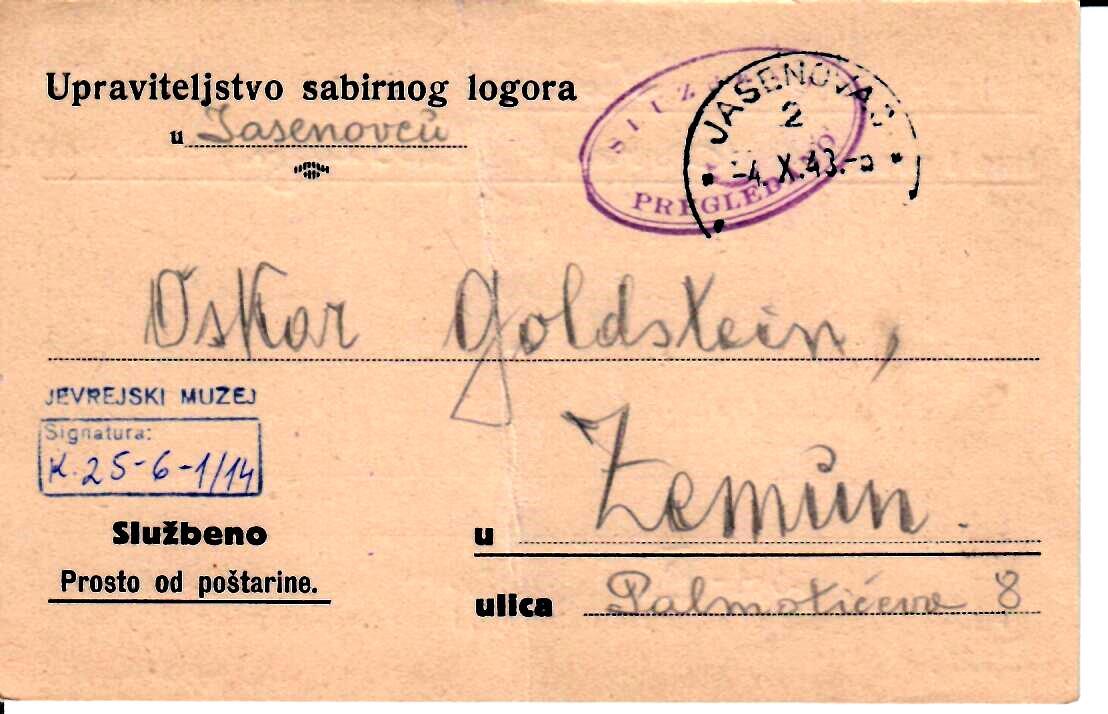 Upraviteljstvo sabirnog logora
u Jasenovcu
PREGLEDANO
JASENOVAC
2
-4.X.43.-
Oskar Goldstein,
JEVREJSKI MUZEJ
Signatura:
K. 25-6-1/14
Službeno
Prosto od poštarine.
u Zemun.
ulica Palmotićeva 8